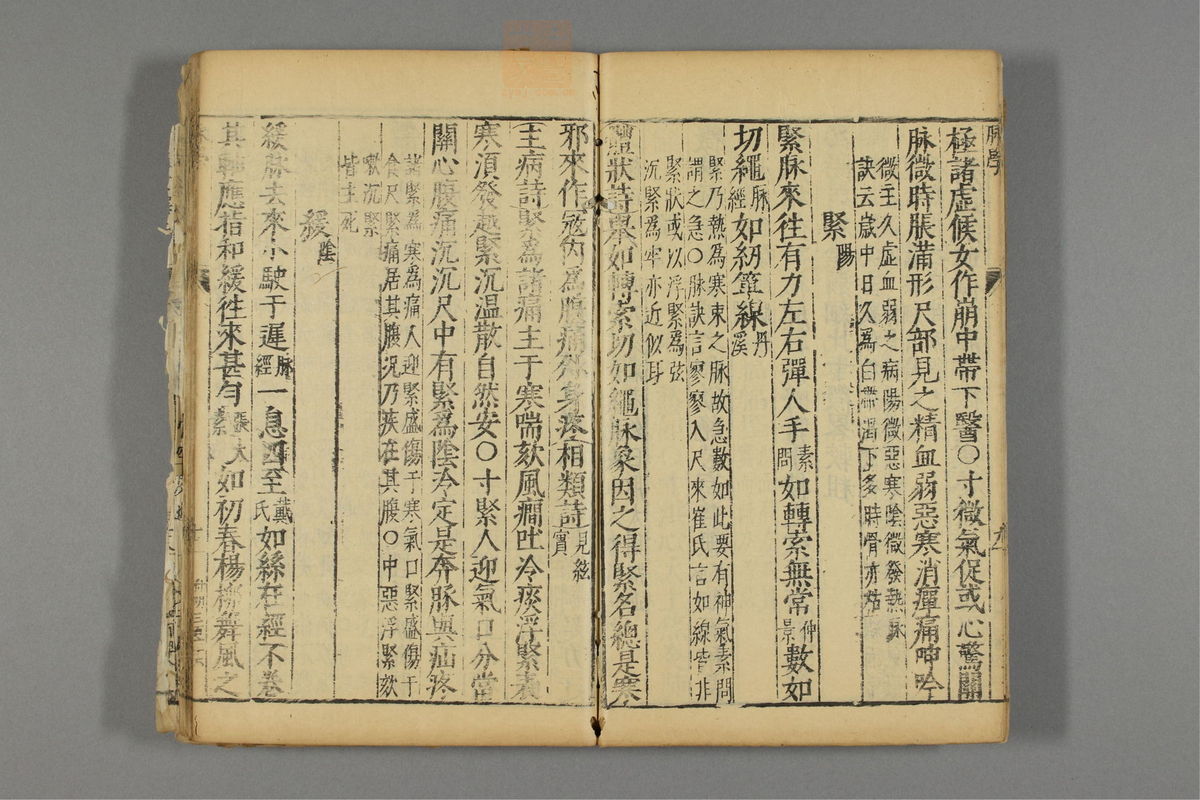 脉學
極諸虛候女作崩中帶下醫○寸微氣促或心驚關
脉微時脹滿形尺部見之精血弱惡寒消癉痛呻吟
微主久虛血弱之病陽微惡寒陰微發熱脉
訣云崴中日久爲白帶漏下多時骨亦枯
緊陽
緊脉來徃有力左右彈人手素問如轉索無常仲景數如
切繩脉經如紉箄線丹溪
緊乃熱爲寒束之脉故急數如此要有神氣素問
謂之急○脉訣言寥寥入尺來崔氏言如線皆非
緊狀或以浮緊爲弦
沉緊爲牢亦近似耳
體狀詩舉如轉索切如繩脉象因之得緊名總是寒
邪來作冦內爲腹痛外身疼相類詩見弦實
主病詩緊爲諸痛主于寒喘欬風癎吐冷痰浮緊表
寒湏發越緊沉溫散自然安○寸緊人迎氣口分當
關心腹痛沉沉尺中有緊爲陰冷定是奔豚與疝疼
諸緊爲寒爲痛人迎緊盛傷于寒氣口緊盛傷于
食尺緊痛居其腹況乃疾在其腹○中惡浮緊欬
嗽沉緊
皆主死
緩陰
緩脉去來小駛于遲脉經一息四至戴氏如絲在經不卷
其軸應指和緩徃來甚勻張太素如初春楊柳舞風之